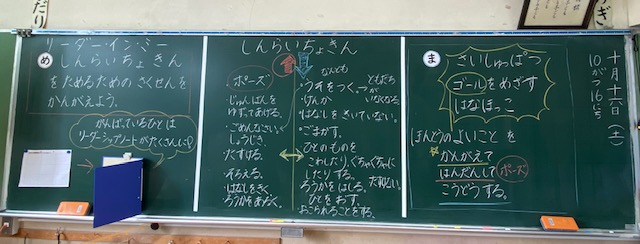 め
リーダー・イン・ミー
しんらいちょきん
をためるための さくせんを
かんがえよう。
がんばっているひとは
リーダーシップノートがたくさんに!
しんらいちょきん
ポーズ
・じゅんばんを
ゆずってあげる。
・ごめんなさい。
しょうじき。
・たすける。
・そろえる。
・はなしをきく。
・ろうかをあるく。
なんども
・うそをつく。
ともだち
がいなくなる。
・けんか
・はなしをきいていない。
・ごまかす。
・ひとのものを
こわしたり、ぐちゃぐちゃに
したりする。
・ろうかをはしる。
・ひとをおす。
・おこられることをする。
ま
さいしゅっぱつ
ゴールをめざす
はなほっこ
ほんとうのよいこと を
かんがえて
はんだんして
ポーズ
こうどうする。
十月十六日(土)
10がつ16にち